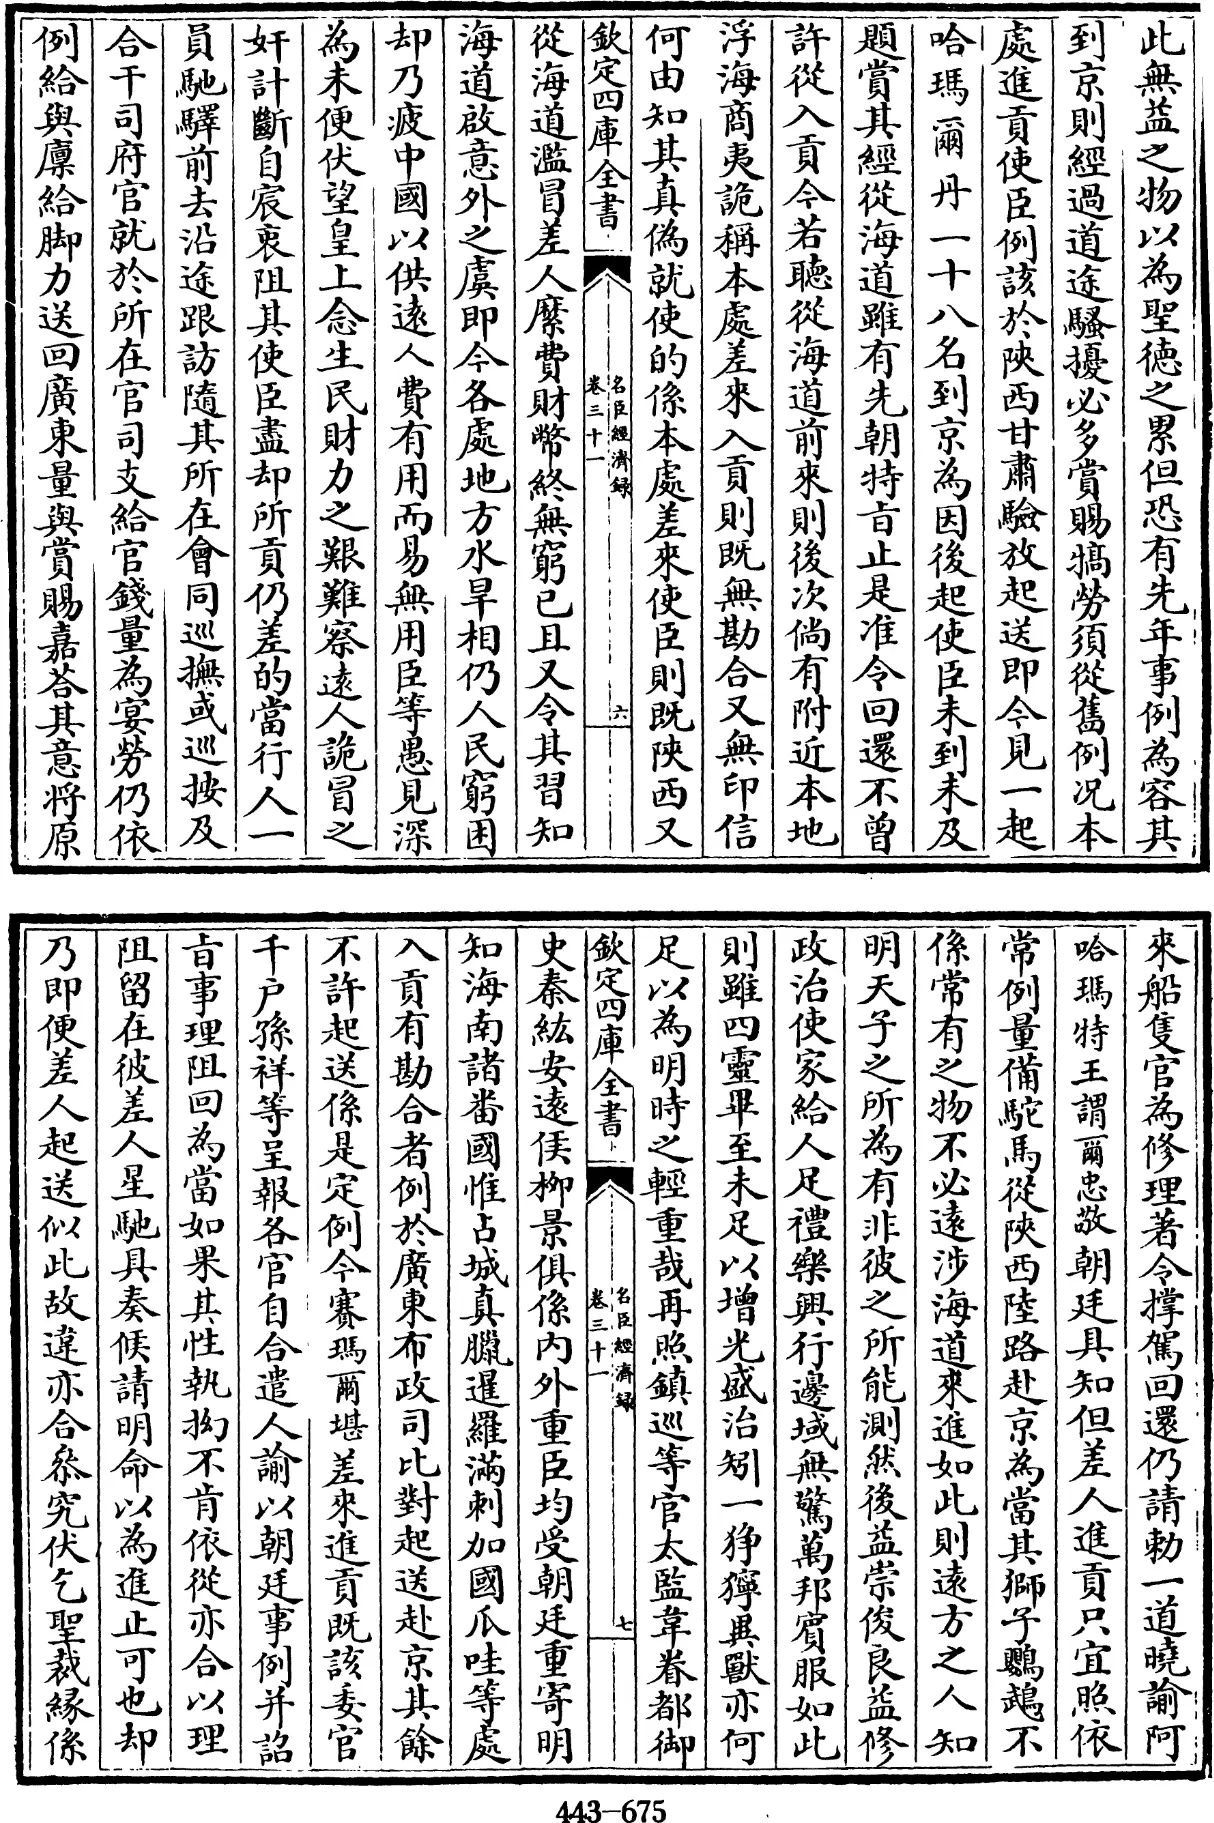 此無益之物以為聖徳之累但恐有先年事例為容其
到京則經過道途騷擾必多賞賜犒勞須從舊例況本
處進貢使臣例該於陜西甘肅驗放起送即今見一起
哈瑪爾丹一十八名到京為因後起使臣未到未及
題賞其經從海道雖有先朝特㫖止是准令回還不曾
許從入貢今若聽從海道前來則後次倘有附近本地
浮海商夷詭稱本處差來入貢則既無勘合又無印信
何由知其真偽就使的係本處差來使臣則既陜西又
欽定四庫全書
名臣經濟録
卷三十一
六
從海道濫冒差人縻費財幣終無窮已且又令其習知
海道啟意外之虞即今各處地方水旱相仍人民窮困
却乃疲中國以供逺人費有用而易無用臣等愚見深
為未便伏望皇上念生民財力之艱難察逺人詭冒之
奸計斷自宸衷阻其使臣盡却所貢仍差的當行人一
員馳驛前去沿途跟訪隨其所在會同巡撫或巡按及
合干司府官就於所在官司支給官錢量為宴勞仍依
例給與廪給脚力送回廣東量與賞賜嘉荅其意将原
來船隻官為修理著令撑駕回還仍請勅一道曉諭阿
哈瑪特王謂爾忠敬朝廷具知但差人進貢只宜照依
常例量備駝馬從陜西陸路赴京為當其獅子鸚鵡不
係常有之物不必逺涉海道來進如此則逺方之人知
明天子之所為有非彼之所能測然後益崇俊良益修
政治使家給人足禮樂興行邊域無驚萬邦賓服如此
則雖四靈畢至未足以增光盛治矧一猙獰異獸亦何
足以為明時之輕重哉再照鎮巡等官太監韋眷都御
欽定四庫全書
名臣經濟録
卷三十一
七
史秦紘安逺侯栁景俱係内外重臣均受朝廷重寄明
知海南諸畨國惟占城真臘暹羅滿剌加國爪哇等處
入貢有勘合者例於廣東布政司比對起送赴京其餘
不許起送係是定例今賽瑪爾堪差來進貢既該委官
千户孫祥等呈報各官自合遣人諭以朝廷事例并詔
㫖事理阻回為當如果其性執拗不肯依從亦合以理
阻留在彼差人星馳具奏候請明命以為進止可也却
乃即便差人起送似此故違亦合叅究伏乞聖裁縁係
443-675